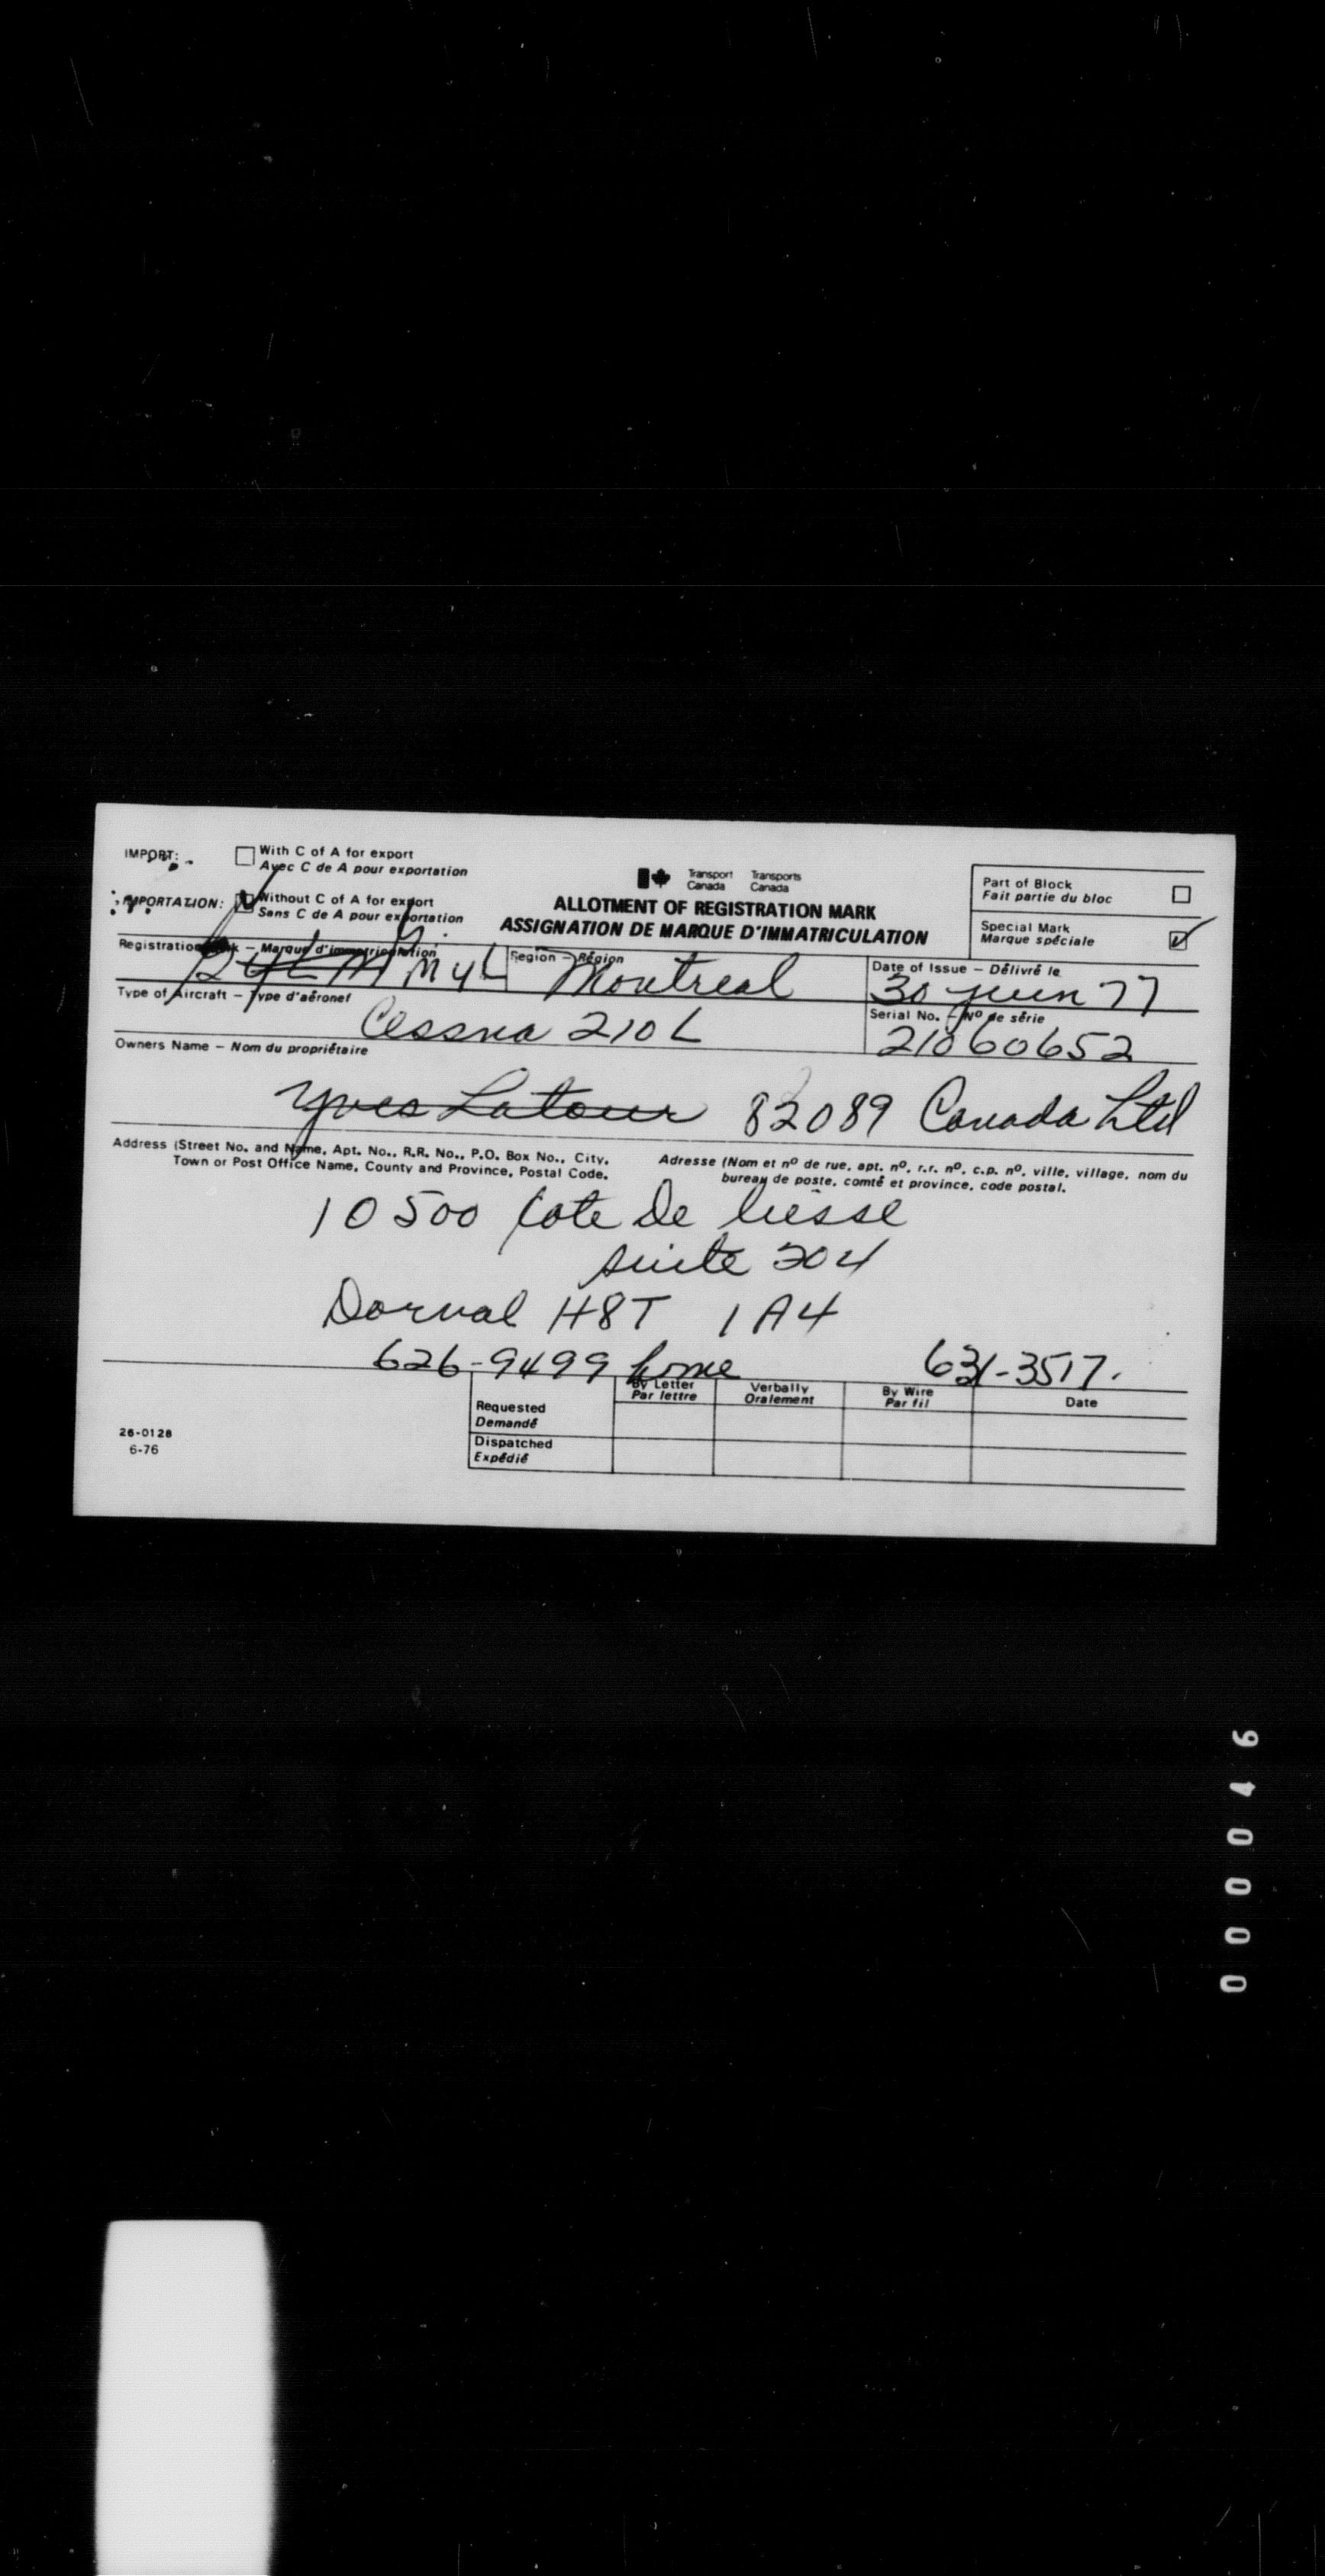 IMPORT:
With C of A for export
Avec C de A pour exportation
IMPORTATION:
Without C of A for export
Sans C de A pour exportation
Transport Canada
Transports Canada
ALLOTMENT OF REGISTRATION MARK
ASSIGNATION DE MARQUE D'IMMATRICULATION
Part of Block
Fait partie du bloc
Special Mark
Marque spéciale
Registration – Marque d'immatriculation
MYL
Region – Région
Montreal
Date of Issue – Délivré le
30 juin 77
Type of Aircraft – Type d'aéronef
Cessna 210L
Serial No. – Nº de série
21060652
Owners Name – Nom du propriétaire
Yves Latour 82089 Canada Ltd
Address (Street No. and Name, Apt. No., R.R. No., P.O. Box No., City,
Town or Post Office Name, County and Province, Postal Code.
Adresse (Nom et nº de rue, apt. nº, r.r. nº, c.p. nº, ville, village, nom du
bureau de poste, comté et province, code postal.
10500 Cote De Liesse
suite 204
Dorval H8T 1A4
626-9499 home 631-3517.
By Letter
Par lettre
Verbally
Oralement
By Wire
Par fil
Date
Requested
Demandé
Dispatched
Expédié
26-0128
6-76
000046